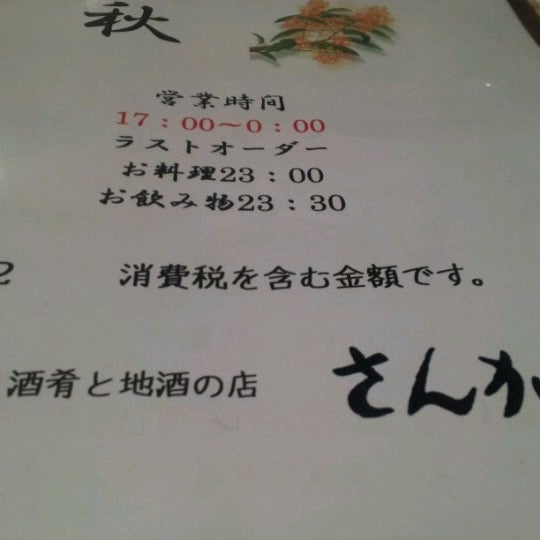 秋
営業時間
17：00～0：00
ラストオーダー
お料理23：00
お飲み物23：30
2 消費税を含む金額です。
酒肴と地酒の店 さんか